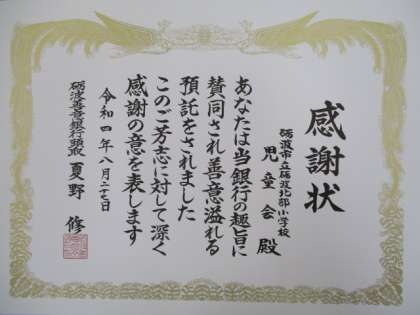 感謝状
砺波市立砺波北部小学校
児童会殿
あなたは当銀行の趣旨に
賛同され善意溢れる
預託をされました
このご芳志に対して深く
感謝の意を表します
令和四年八月二十七日
砺波善意銀行頭取 夏野修